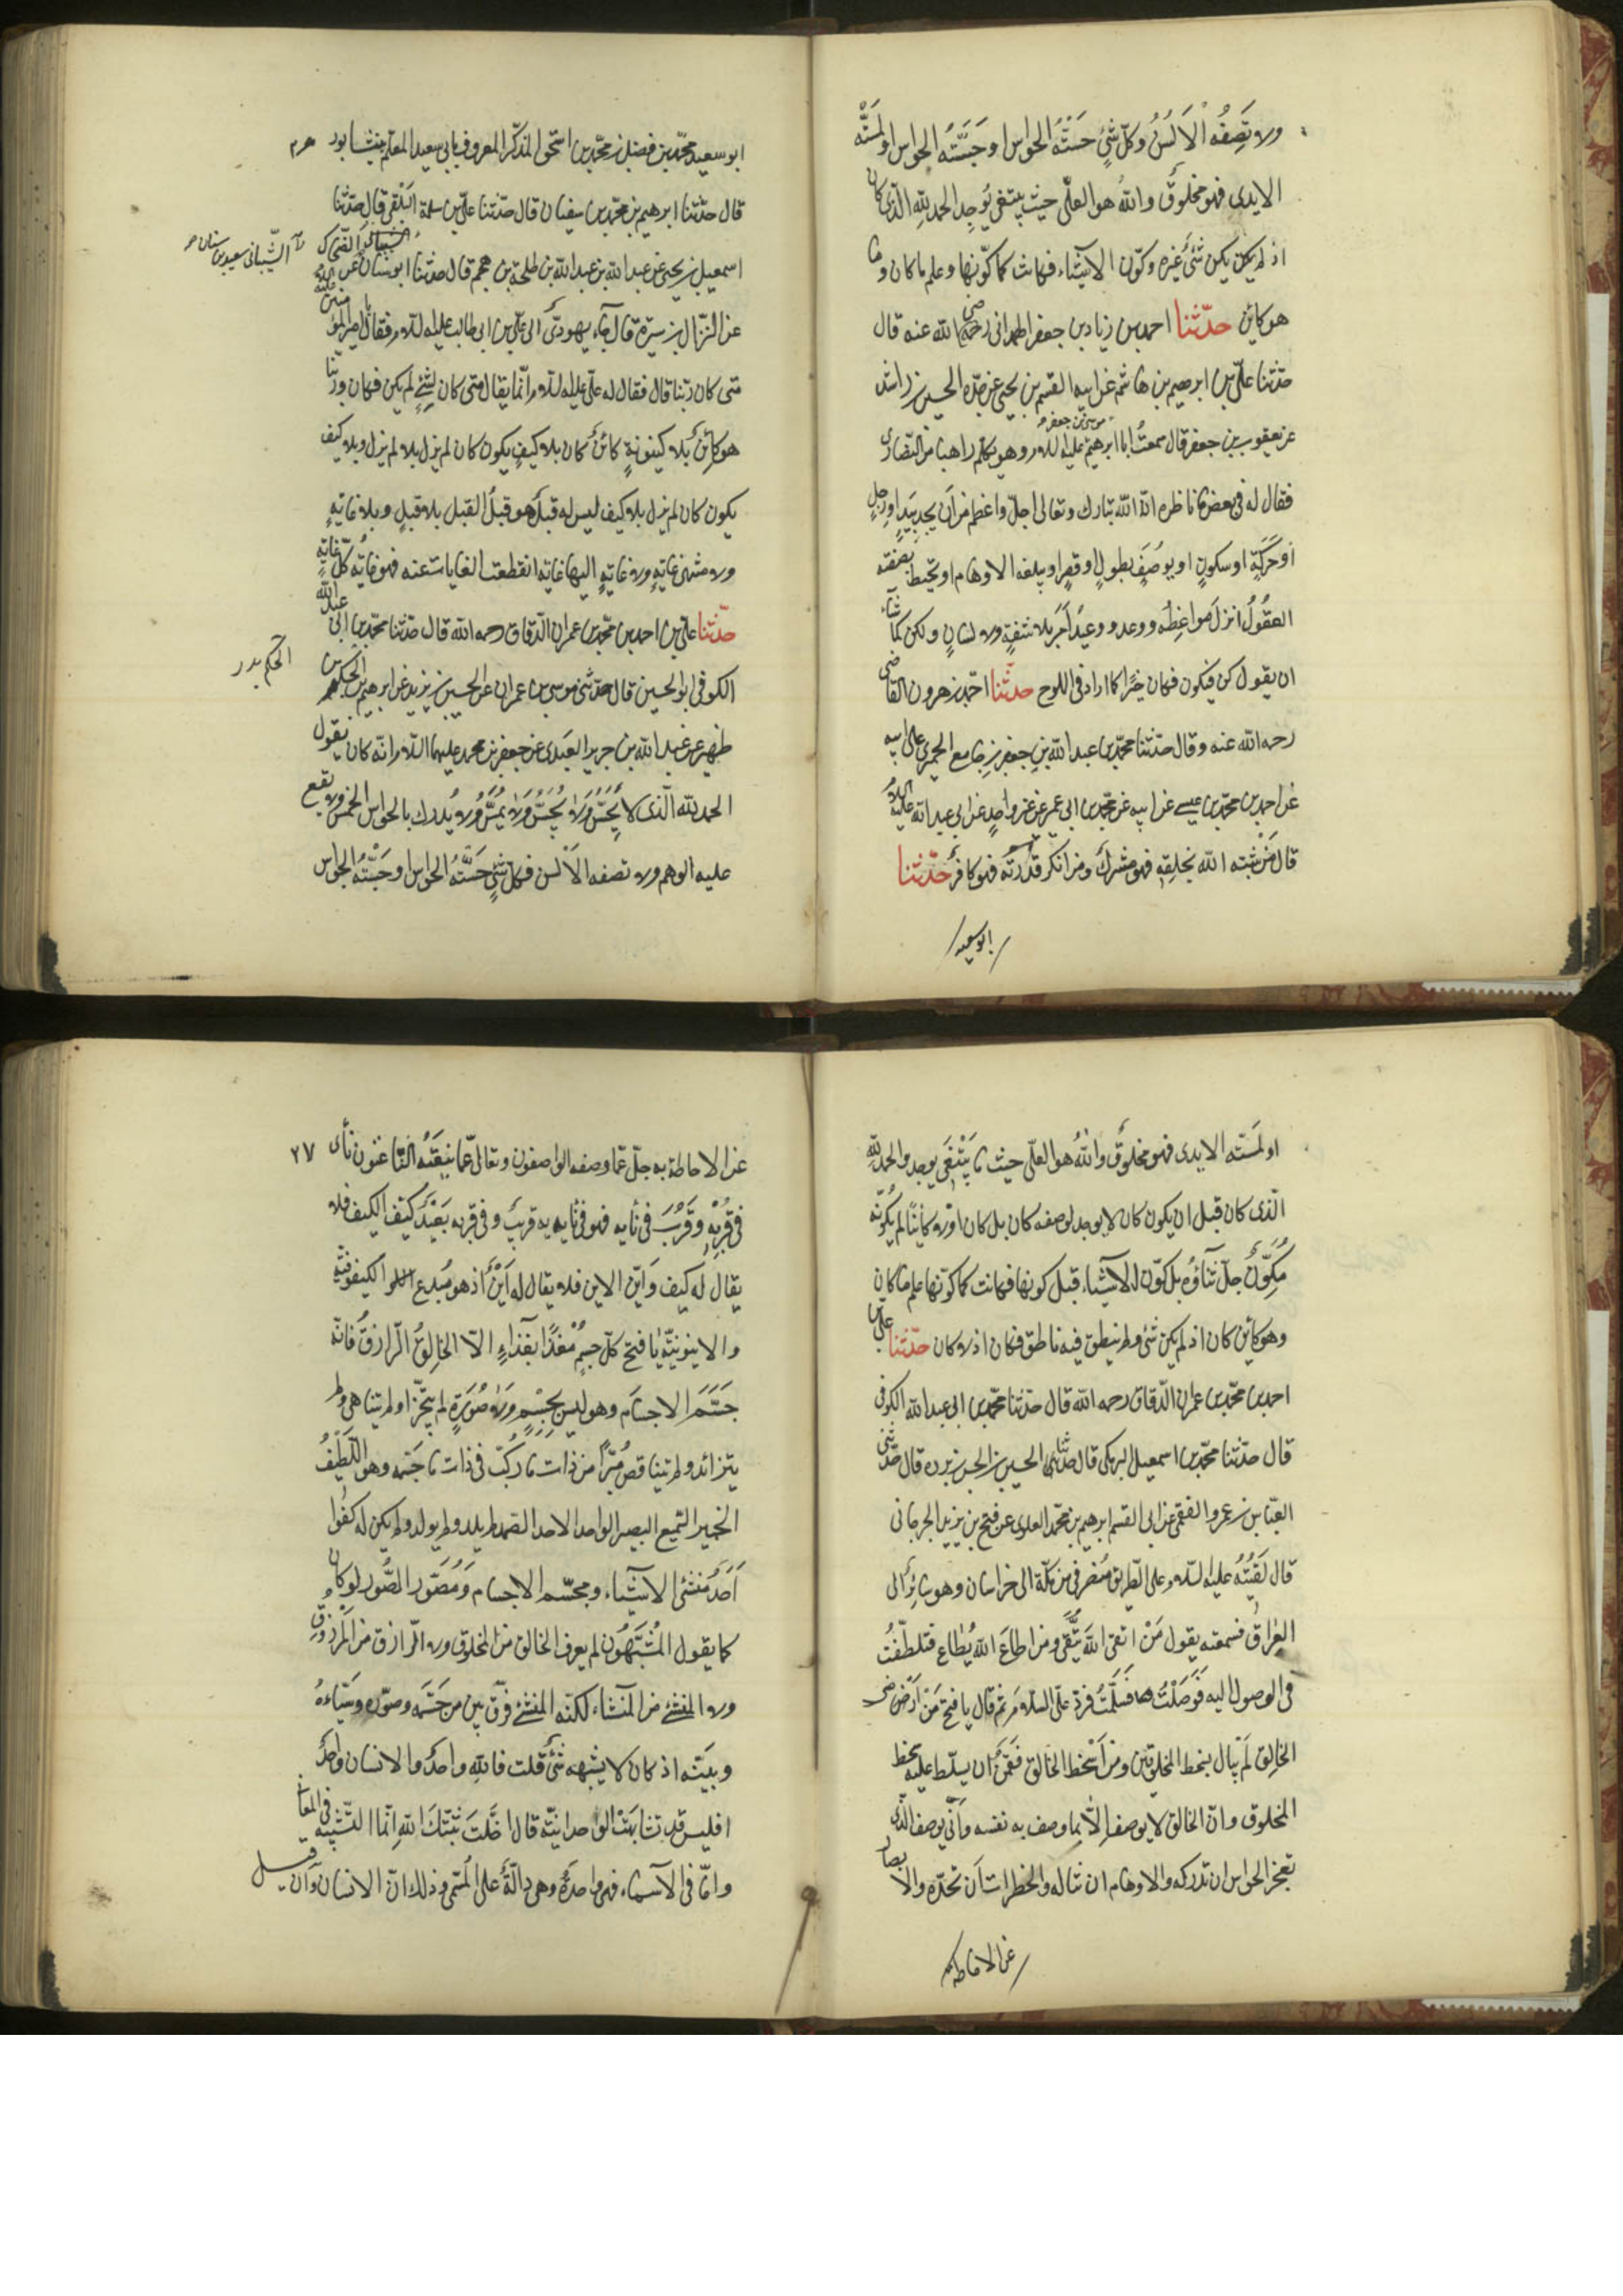 ولا تصفه الالسن وكلّ شئ حسّته الحواس او جسّته الحواس او لمسته
الايدى فهو مخلوق والله هو العلّى حيث يبتغى يوجد الحمد لله الذى كان
اذ لم يكن يكن شئ غيره وكوّن الاشياء فكانت كما كوّنها وعلم ما كان وما
هو كائن حدّثنا احمد بن زياد بن جعفر الهمدانى رحمه رضى الله عنه قال
حدّثنا علىّ بن ابراهيم بن هاشم عن ابيه القسم بن يحيى عن جدّه الحسين بن راشد
عن يعقوب بن جعفر قال سمعت ابا ابرهيم موسى بن جعفر عليه السلام وهو يكلّم راهبا من النصارى
فقال له فى بعض ما ناظره انّ الله تبارك وتعالى اجلّ واعظم من ان يحدّ بيد او رجل
او حركة او سكون او يوصف بطول او قصر او يبلغه الاوهام او تحيط بصفته
العقول انزل مواعظه ووعده ووعيد امر بلا شفة ولا لسان ولكن كما شاء
ان يقول كن فيكون فكان خيرا كما اراد فى اللوح حدثنا احمد بن هرون القاضى
رحمه الله عنه وقال حدّثنا محمّد بن عبد الله بن جعفر بن جامع الحميرى عن ابيه
عن احمد بن محمّد بن عيسى عن ابيه عن محمّد بن ابى عمير عن غير واحد عن ابى عبد الله عليه السلام
قال من شبّه الله بخلقه فهو مشرك ومن انكر قدرته فهو كافر حدّثنا
ابو سعيد
ابو سعيد محمّد بن فضل بن محمّد بن اسحق المذكّر المعروف بابى سعيد المعلّم بنيشابور
قال حدّثنا ابرهيم بن محمّد بن سفيان قال حدّثنا علىّ بن سلمة اللبقى قال حدّثنا
اسمعيل بن يحيى عن عبد الله بن عبد الله بن طلحة بن هجيم قال حدّثنا ابو سنان
الشّيبانى سعيد بن سنان
عن النزّال بن سبرة قال جاء يهودىّ الى علىّ بن ابى طالب عليه السلام فقال يا امير المؤمنين
متى كان ربّنا قال فقال له علىّ عليه السلام انّما يقال متى كان لشئ لم يكن فكان وربّنا
هو كائن بلا كينونة كائن كان بلا كيف يكون كان لم يزل بلا لم يزل وبلا كيف
يكون كان لم يزل بلا كيف ليس له قبل هو قبل القبل بلا قبل وبلا غاية
ولا منتهى غاية ولا غاية اليها غاية انقطعت الغايات عنه فهو غاية كلّ غاية
حدّثنا علىّ بن احمد بن محمّد بن عمران الدّقاق رحمه الله قال حدّثنا محمّد بن ابى عبد الله
الكوفى ابو الحسين قال حدّثنى موسى بن عمران عن الحسين بن يزيد عن ابرهيم بن الحكم بن
الحكم بدر
ظهير عن عبد الله بن جرير العبدى عن جعفر بن محمد عليهما السلام انّه كان يقول
الحمد لله الّذى لا يحسّ ولا يجسّ ولا يمسّ ولا يدرك بالحواس الخمس ولا يقع
عليه الوهم ولا تصفه الالسن فكل شئ حسّته الحواس او جسّته الحواس
او لمسته الايدى فهو مخلوق والله هو العلّى حيث ما يبتغى يوجد والحمد لله
الّذى كان قبل ان يكون كان لا يوجد لوصفه كان بل كان اولا كائنا لم يكوّنه
مكوّن جلّ ثناؤه بل كوّن الاشياء قبل كونها فكانت كما كوّنها علم ما كان
وهو كائن كان اذ لم يكن شئ ولم ينطق فيه ناطق فكان اذ لا كان حدّثنا علىّ بن
احمد بن محمّد بن عمران الدّقاق رحمه الله قال حدّثنا محمّد بن ابى عبد الله الكوفى
قال حدّثنا محمّد بن اسمعيل البرمكى قال حدثنا الحسين بن الحسن بن برده قال حدّثنى
العبّاس بن عمرو الفقيمى عن ابى القسم ابرهيم بن محمّد العلوى عن فتح بن يزيد الجرجانى
قال لقيته عليه السّلام على الطّريق منصرفى من مكّة الى خراسان وهو سائر الى
العراق فسمعته يقول من اتقى الله يتّقى ومن اطاع الله يطاع فتلطّفت
فى الوصول اليه فوصلت فسلّمت فردّ علىّ السلام ثم قال يا فتح من ارضى
الخالق لم يبال بسخط المخلوقين ومن اسخط الخالق فقمن ان يسلّط عليه سخط
المخلوق وانّ الخالق لا يوصف الّا بما وصف به نفسه وانّى يوصف الّذى
تعجز الحواس ان تدركه والاوهام ان تناله والخطرات ان تحدّه والابصار
عن الاحاطة به
عن الاحاطة به جلّ عمّا وصفه الواصفون وتعالى عمّا ينعته النّاعتون نأى
٢٧
فى قربه وقرب فى نأيه فهو فى نأيه قريب وفى قربه بعيد كيّف الكيف فلا
يقال له كيف واين الاين فلا يقال له اين اذ هو مبدع الكيفوفيّة
والاينونيّة يا فتح كلّ جسم مغذّا بغذاء الّا الخالق الرّازق فانّه
جسّم الاجسام وهو ليس بجسم ولا صورة لم يتجزّا ولم يتناهى ولم
يتزائد ولم يتناقص مبرّأ من ذات ما ركّب فى ذات ما جسّمه وهو اللّطيف
الخبير السّميع البصير الواحد الاحد الصّمد لم يلد ولم يولد ولم يكن له كفوا
احد منشئ الاشياء ومجسّم الاجسام ومصوّر الصّور لو كان
كما يقول المشبّهون لم يعرف الخالق من المخلوق ولا الرّازق من المرزوق
ولا المنشئ من المنشاء لكنّه المنشئ فرّق بين من جسّمه وصوّره وشيّاءه
وبيّنه اذ كان لا يشبهه شئ قلت فالله واحد والانسان واحد
افليس قد تشابهت الواحدانيّة قال احلت ثبّتك الله انّما التّشبيه فى المعانى
وامّا فى الاسماء فهى واحدة وهى دالّة على المسمّى وذلك انّ الانسان وان قيل